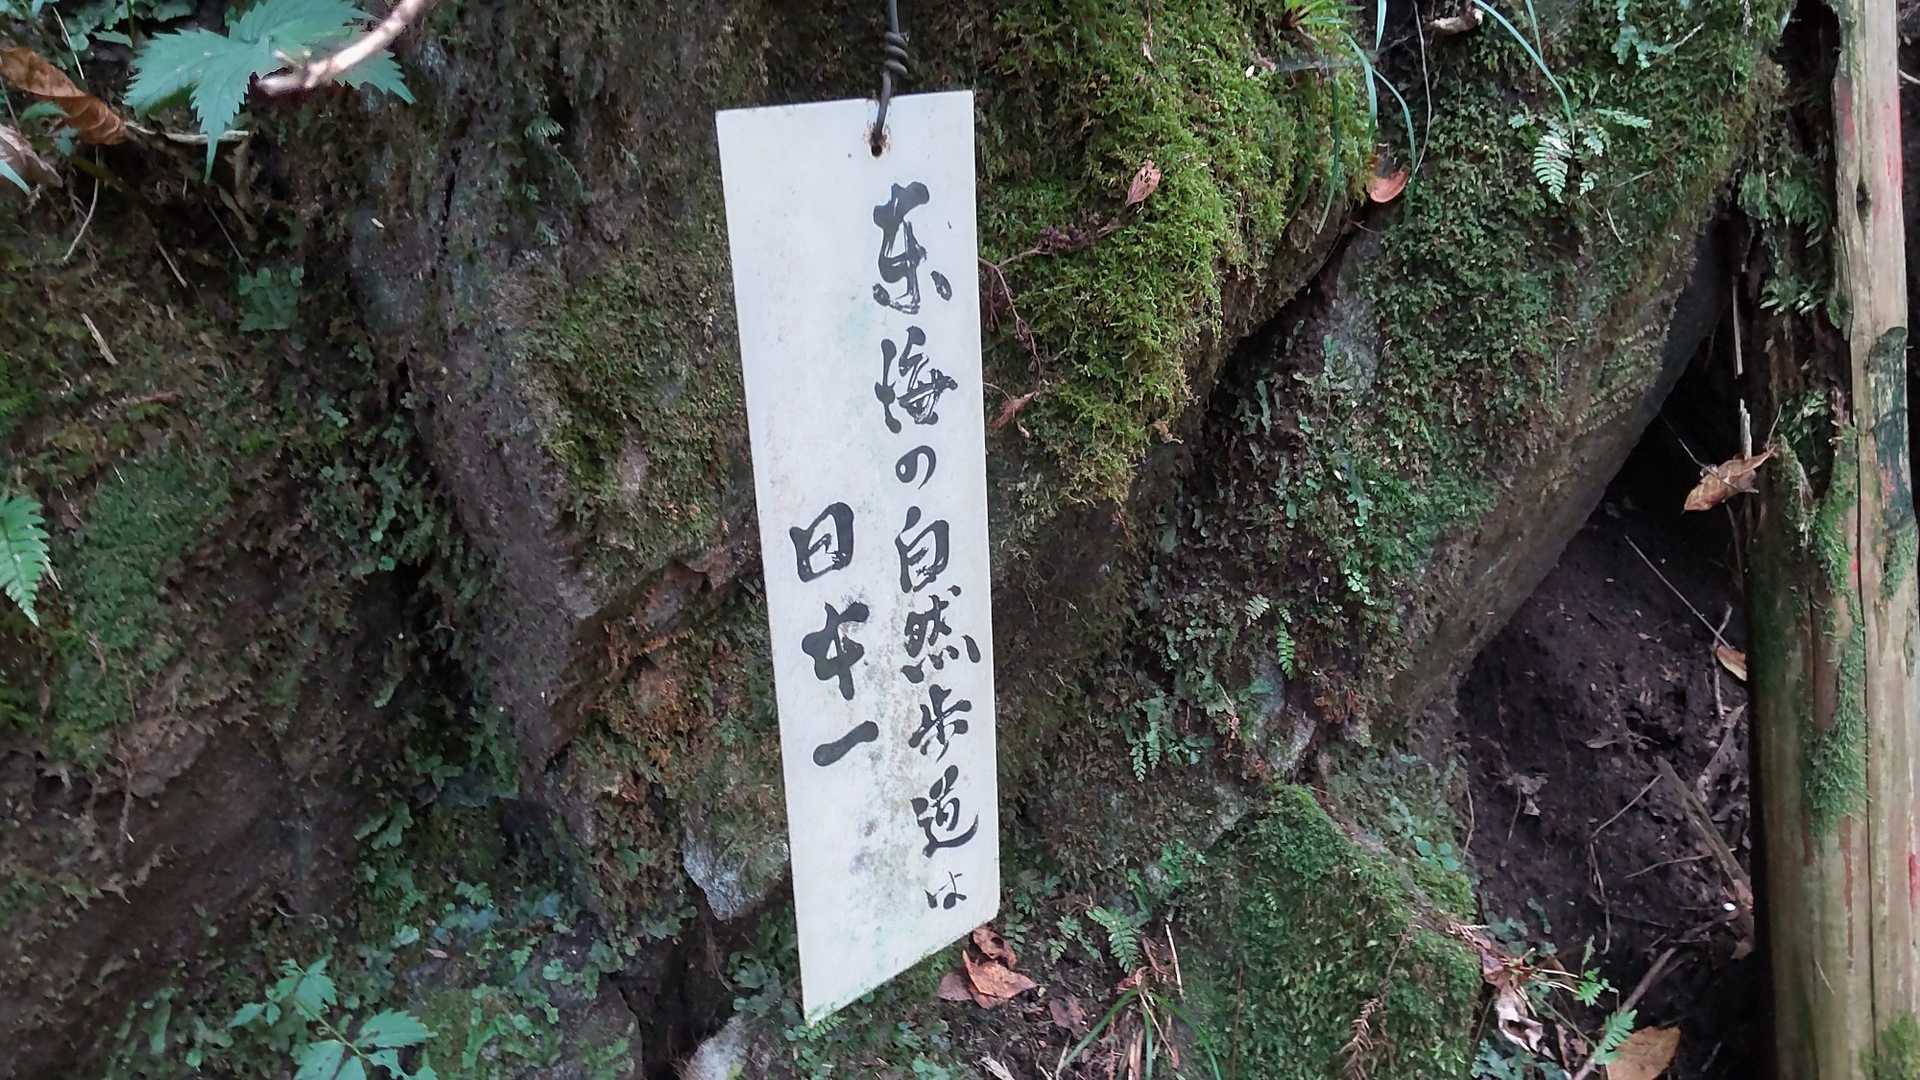 东海の自然歩道は
日本一